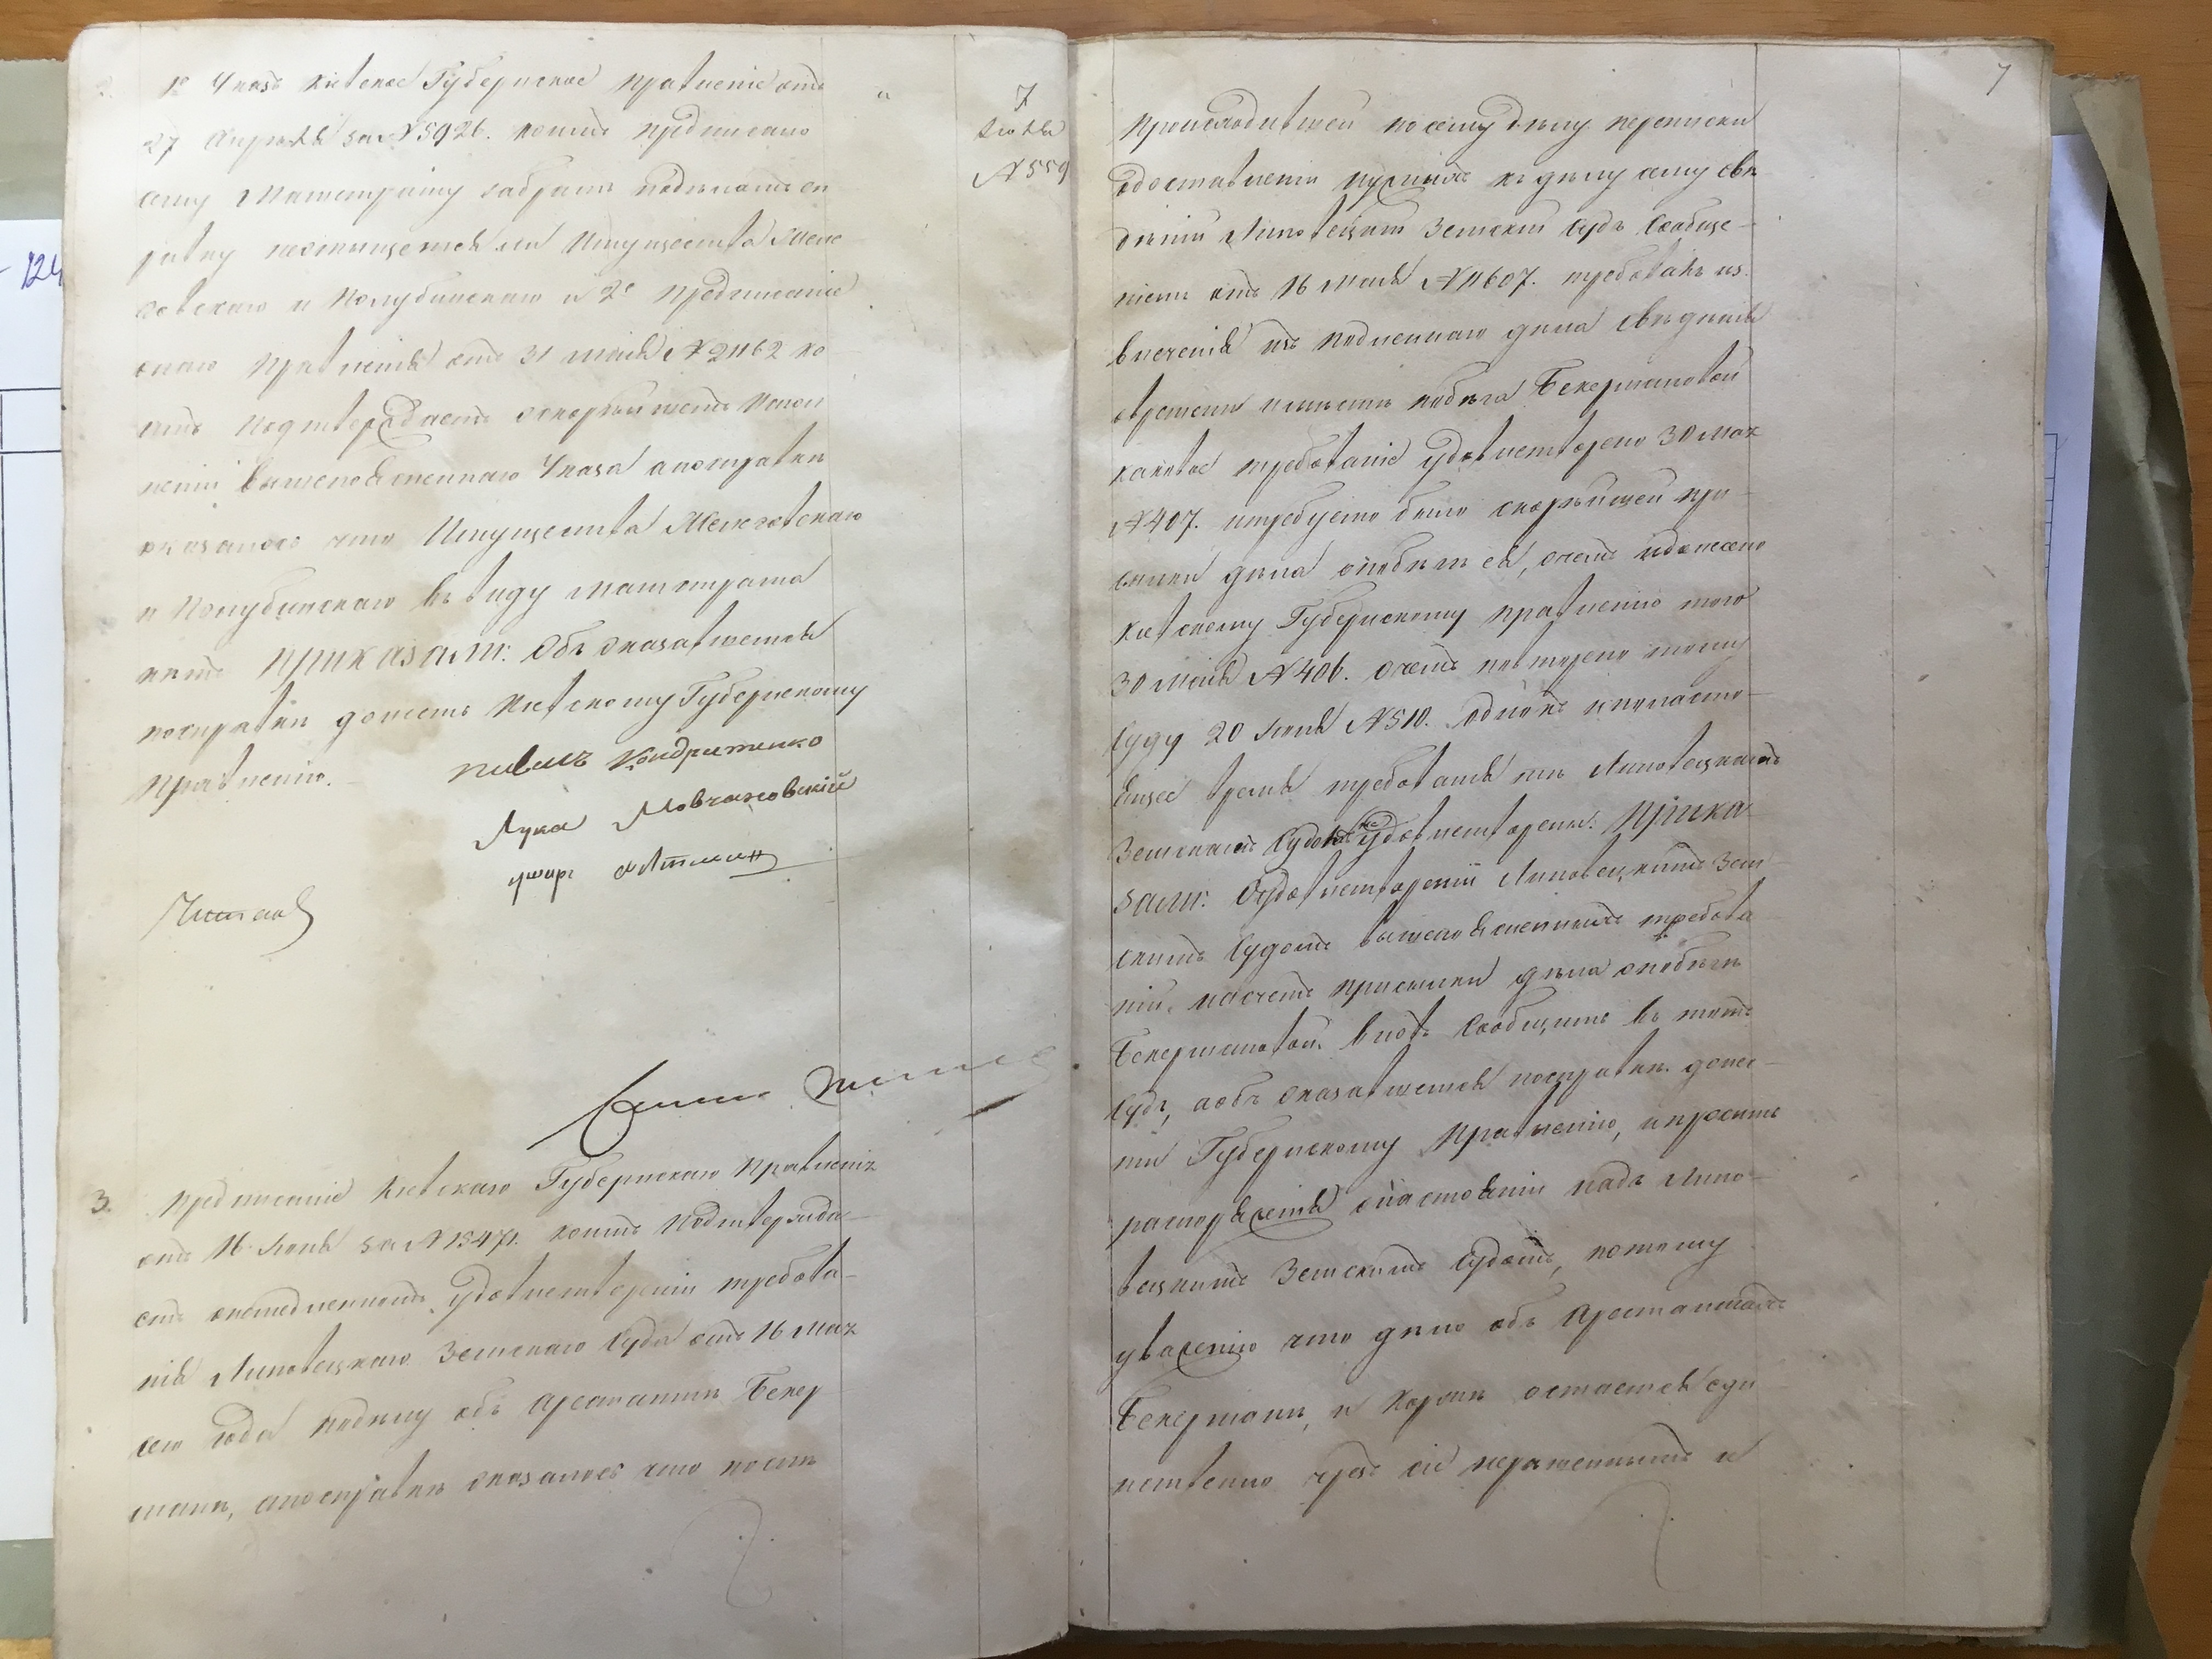 1е Указъ Кіевское Губернское Правленіе отъ
27 Апрѣля за № 5926. коимъ предписано
сему Магистрату собрать
Имущества
и Голубинскаго и 2е предписаніе
онаго Правленія отъ 31 Маія № 21162 ко
имъ подтверждаетъ о скорѣйшемъ испол
неніи вышепомянутаго Указа а по справкѣ
оказалось что Имущества
и Голубинскаго въ виду Магистрата
нѣтъ Приказали: Объ оказавшемся
по справкѣ донесть Кіевскому Губернскому
Правленію.
7
Іюля
№ 559
Лука Мовчановскій
Читалъ
3. Предписаніе Кіевскаго Губернскаго Правленія
отъ 16 Іюня за № 13471. коимъ подтвержда-
етъ о немедленномъ удовлетвореніи требова-
нія Липовецкаго Земскаго Суда отъ 16 Мая
сего года по дѣлу объ Арестантѣ Бекер
манѣ, а по справкѣ оказалось что по сему
7
происходившей по сему дѣлу переписки
о доставленіи нужныхъ къ дѣлу сему свѣ
дѣній Липовецкій Земскій Судъ Сообще-
ніемъ отъ 16 Маія № 11607. требовалъ из
влеченія изъ подлиннаго дѣла свѣденія
о времени побѣга Бекермановой
каковое требованіе удовлетворено 30 Мая
№ 407. и требуемо было скорѣйшей при-
сылки дѣла о побѣгѣ ея, о чемъ и донесено
Кіевскому Губернскому Правленію того
30 Маія № 406. о чемъ повторено тому
Суду 20 Іюня № 510. однакъ и по насто-
ящее время требованія тѣ Липовецкимъ
Земскимъ Судомъ не удовлетворены. Прика
зали: О удовлетвореніи Липовецкимъ Зем-
скимъ Судомъ вышепомянутыхъ требова
ній. насчетъ присылки дѣла о побѣгѣ
Бекермановой вновь Сообщить въ тотъ
Судъ, а объ оказавшемся по справкѣ донес-
ти Губернскому Правленію, и просить
распоряженія о настояніи надъ Липо-
вецкимъ Земскимъ Судомъ, потому
уваженію что дѣло объ Арестантахъ
Бекерманѣ, и остается еди
нственно чрезъ сіе нерѣшеннымъ и